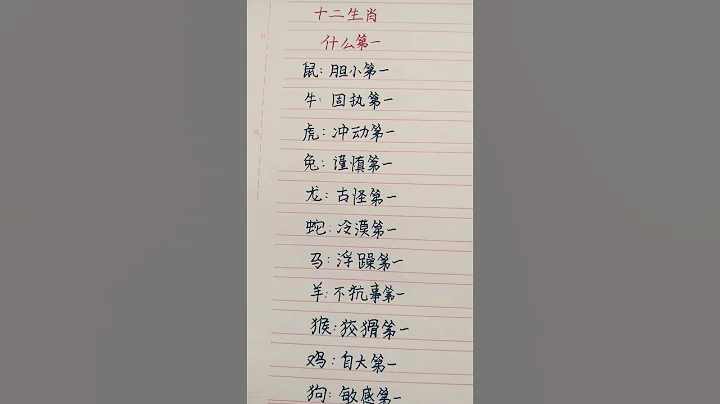 十二生肖
什么第一
鼠:胆小第一
牛:固执第一
虎:冲动第一
兔:谨慎第一
龙:古怪第一
蛇:冷漠第一
马:浮躁第一
羊:不抗事第一
猴:狡猾第一
鸡:自大第一
狗:敏感第一